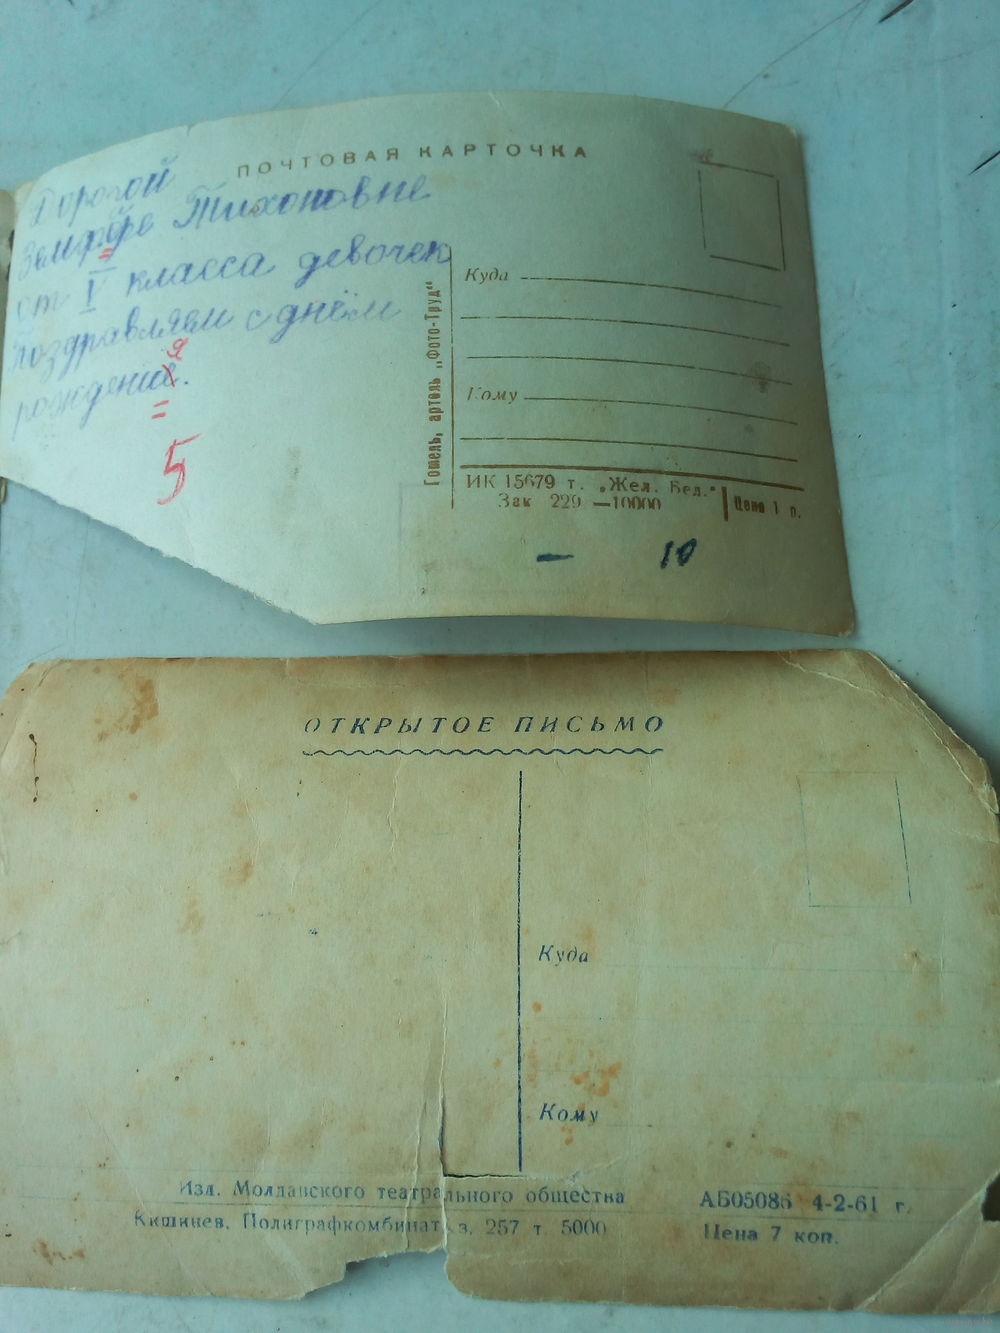 ПОЧТОВАЯ КАРТОЧКА
Дорогой
Земфире Тихоновне
от V класса девочек
поздравляем с днём
рождения.
=
5
Гомель, артель „Фото-Труд“
Куда
Кому
ИК 15679 т. „Жел. Бел.“
Зак 229 —10000
Цена 1 р.
— 10
ОТКРЫТОЕ ПИСЬМО
Куда
Кому
Изд. Молдавского театрального общества
Кишинев, Полиграфкомбинат з. 257 т. 5000
АБ05086 4-2-61 г.
Цена 7 коп.